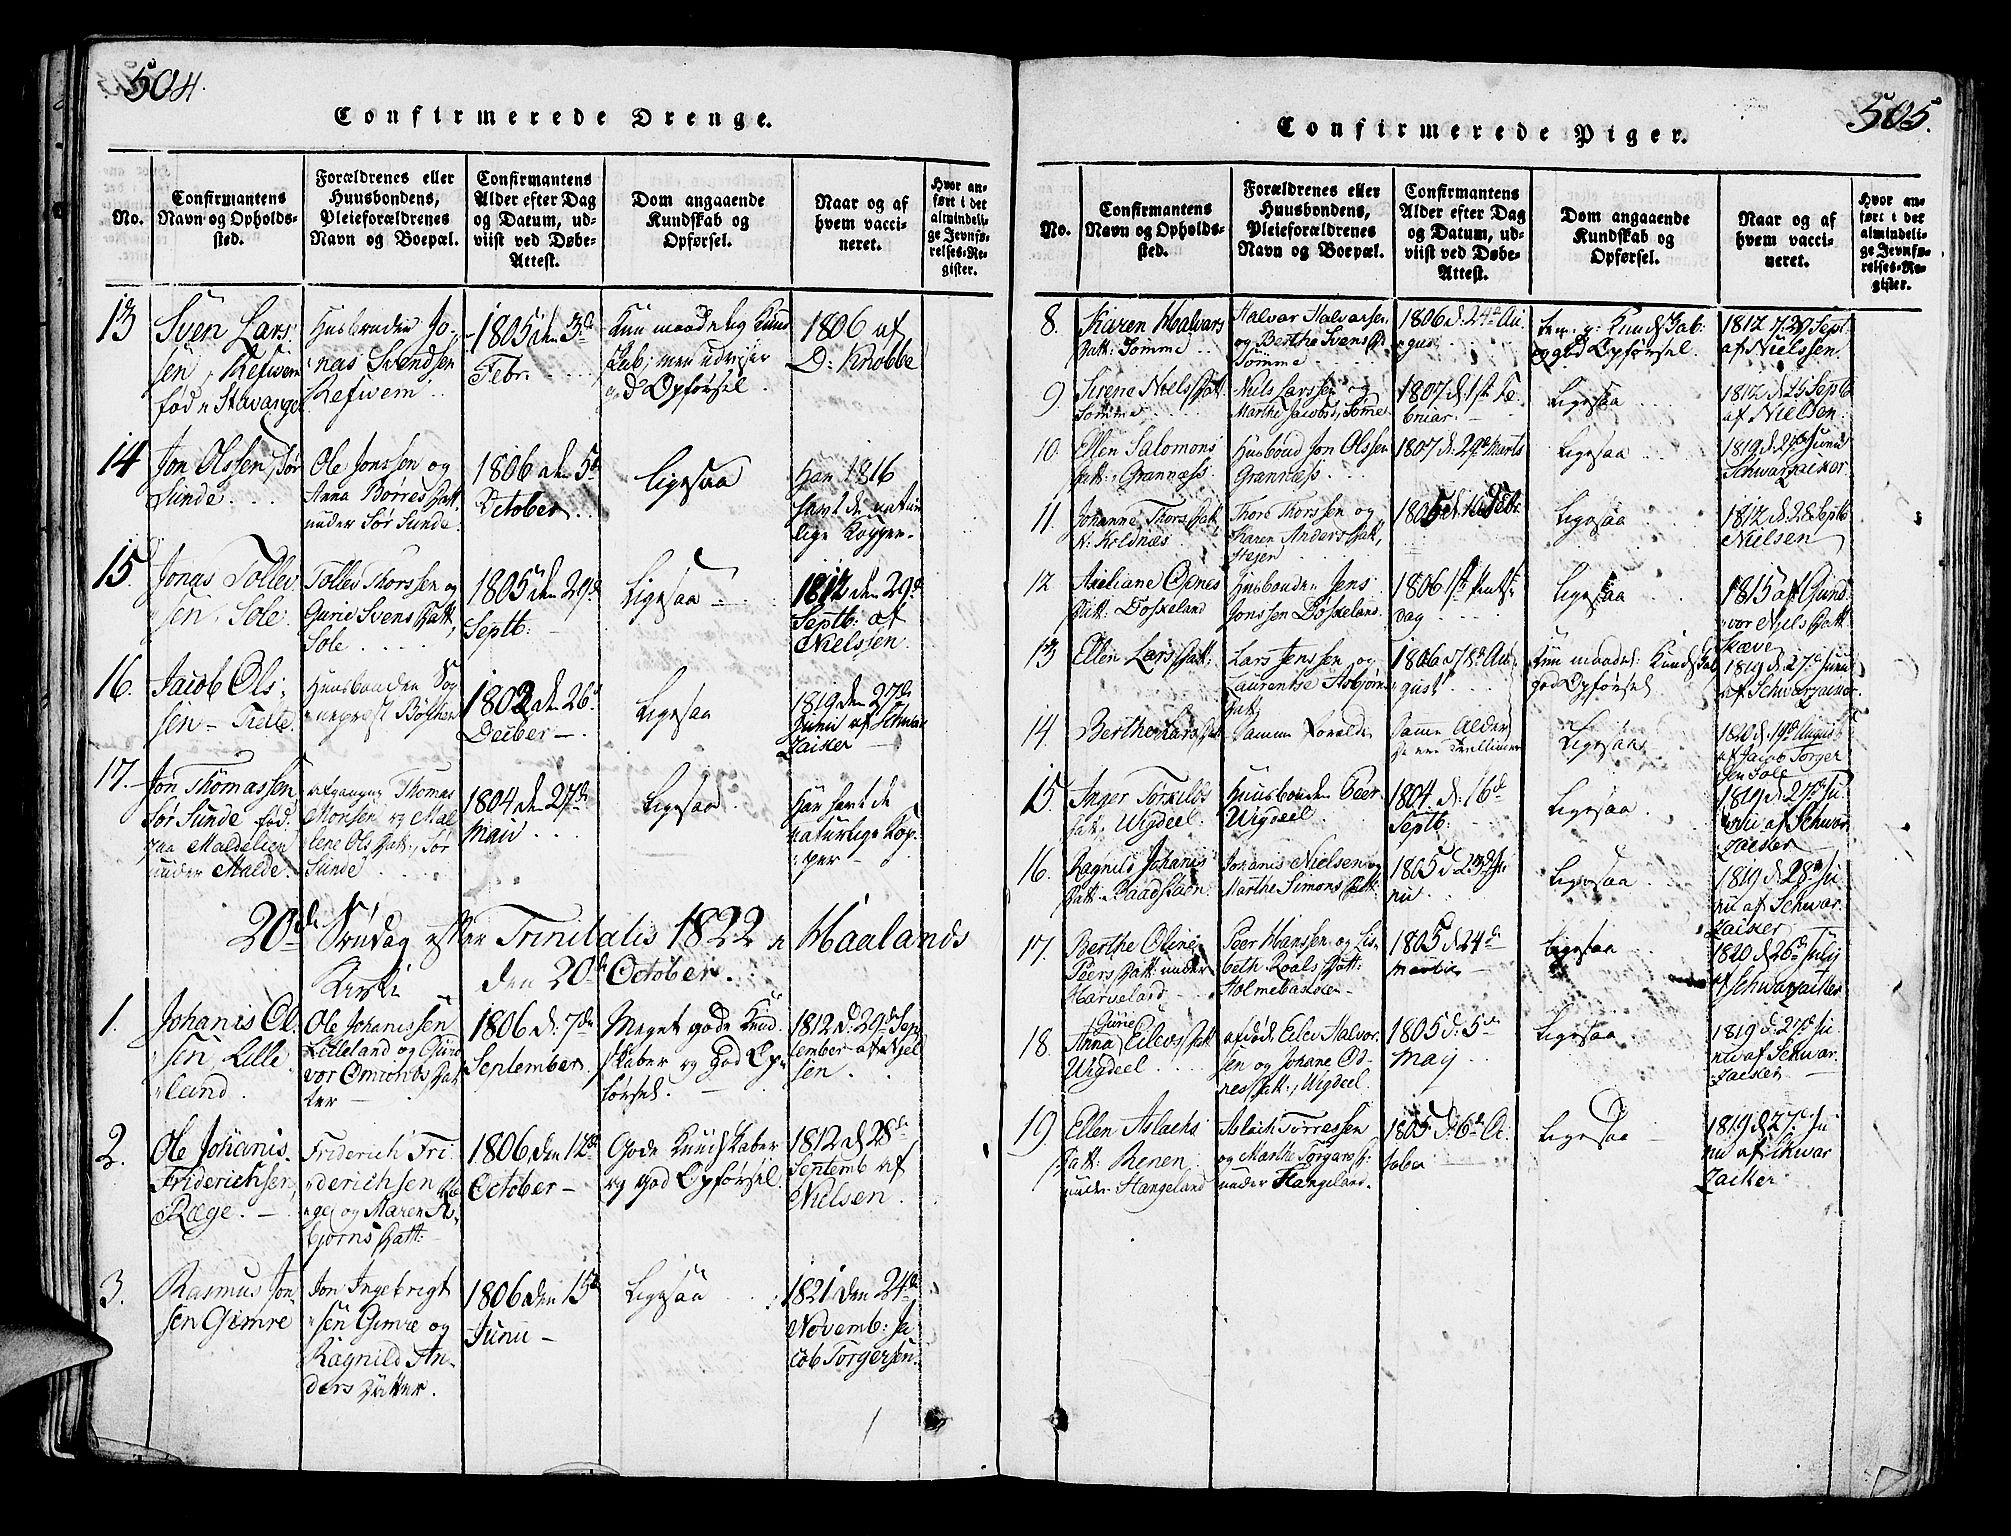 504.
Confirmerede Drenge.
No.
Confirmantens
Navn og Opholds-
sted.
Forældrenes eller
Huusbondens,
Pleieforældrenes
Navn og Boepæl.
Confirmantens
Alder efter Dag
og Datum, ud-
viist ved Døbe-
Attest.
Dom angaaende
Kundskab og
Opførsel.
Naar og af
hvem vacci-
neret.
Hvor an-
ført i det
almindeli-
ge Jevnfø-
relses-Re-
gister.
13
Sven Lars
sen, Refwem
fød i Stavanger
Husbonden Jo-
nas Svendsen
Refwem
1805 den 3d
Febr.
Kun maadelig Kund
skab; men udviser
god Opførsel
1806 af
D: Knobbe
14
Jon Olssen, Sør
Sunde
Ole Jonssen og
Anna Børres Datt
under Sør Sunde.
1806 den 5d
October
Ligesaa
Har 1816
havt de natur
lige Kopper.
15.
Jonas Tollev
sen, Sole.
Tollev Thorssen og
Gurie Svens Datt,
Sole
1805 den 29d
Septb:
Ligesaa
1812 den 29d
Septb: af
Nielssen
16.
Jacob Ols:
sen - Tielte
Huusbonden Sog
neprest Bøgher
1802 den 26d
Decber
Ligesaa
1819 den 27de
Junii af Schwar
zaiker
17.
Jon Thomassen
Sør Sunde fød
paa Maldelien
under Malde.
afgangng Thomas
Monsen og Mal
lene Ols Datt., Sør
Sunde
1804 den 27de
Maii
Ligesaa
Har havt de
naturlige Kop
per
20de Søndag efter Trinitatis 1822 i Haalands
Kirke den 20de October.
1.
Johanis Ol
sen Lille
land.
Ole Johanissen
Lilleland og Gun
vor Omunds Dat
ter
1806 d: 7de
September
Meget gode Kund
skaber og god Op
førsel.
1812 d: 29de Sep
tember af Niel
sen
2.
Ole Johanis
Friderichsen,
Ræge.
Friderich Fri
derichsen Ræ
ge og Maren As
bjørns Datt:
1806, den 12de
October
Gode Kundskaber
og god Opførsel.
1812 d 28de
Septemb af
Nielsen.
3.
Rasmus Jon
sen Gimre
Jon Ingebrigt
sen Gimre og
Ragnild An
ders Datter.
1806 den 15de
Junii
Ligesaa
1821 den 24de
Novemb: Ja
cob Torgersen.
505.
Confirmerede Piger.
No.
Confirmantens
Navn og Opholds-
sted.
Forældrenes eller
Huusbondens,
Pleieforældrenes
Navn og Boepæl.
Confirmantens
Alder efter Dag
og Datum, ud-
viist ved Døbe-
Attest.
Dom angaaende
Kundskab og
Opførsel.
Naar og af
hvem vacci-
neret.
Hvor an-
ført i det
almindeli-
ge Jevnfø-
relses-Re-
gister.
8.
Karen Halvars
Datt: Sømme
Halvar Halvarsen
og Berthe Svens D
Sømme
1806 d. 24de Au
gust
Kundskab:
og god Opførsel.
1812 29 Sept.
af Nielssen.
9.
Sirene Niels Datt.
Sømme
Niels Larssen og
Marthe Jacobs, Sømme
1807 d. 1ste Fe
bruar
Ligesaa
1812 d. 29 Septb
af Nielsen
10.
Ellen Salomons
Datt: Grannæss
Husbond Jon Olssen
Grannæss
1807 d: 29de Marts
Ligesaa
1819 d. 27de Junii
Schwarzaiker.
11.
Johanne Thors Datt
N: Koldnæs
Thore Thorssen og
Karen Anders Datt,
1805 d: 10 Febr.
Ligesaa
1812 d. 28 Septb
Nielsen
12.
Axeliane Osnes
Datt: Doskeland
Husbonden Jens
Jonssen Doskeland
1806 1ste Pints
dag
Ligesaa
1815 af Gund
vor Niels Datt
Skæve
13
Ellen Lars Datt:
Lars Jenssen og
Laurentse Asbjørn
Datt
1806 18de Au
gust
Kun maadel: Kundskab
god Opførsel
1819 d. 27de Junii
af Schwarzaiker
14.
Berthe Lars Datt
Samme Forældre
Samme Alder
de ere Tvillinger
Ligesaa
1820 d. 19de August
af Jacob Torger
sen Sole
15.
Inger Torkilds
Datt, Wigdeel.
Huusbonden Peer
Wigdeel.
1804. d. 16de
Septb:
Ligesaa
1819 d. 27de Ju
nii af Schwar
zaiker
16.
Ragnild Johanis
Datt. Raadstaan.
Johanis Nielsen og
Marthe Simons Datt:
1805 d 23de Ju
nii
Ligesaa
1819 d. 28de Ju
nii af Schwar
zaiker
17.
Berthe Oline
Peers Datt: under
Harveland
Peer Hanssen og Lis
beth Roals Datt:
Holmebakken
1805 d 24de
Martii
Ligesaa
1820 d 26de July
af Schwarzaiker
18.
Gurie
Anna Eilevs Datt
Wigdeel
afdøde Eilev Halvor
sen og Johane Od
nes Datt, Wigdeel.
1805 d: 5te
May
Ligesaa
1819 d. 27de Ju
nii af Schwar
zaiker
19.
Ellen Aslachs
Datt: Renen
under Hangeland
Aslach Torressen
og Marthe Torgers D:
under Hangeland.
1805 d: 6de Oc
tober
Ligesaa
1819 d 27. Ju
nii af Schwar
zaiker